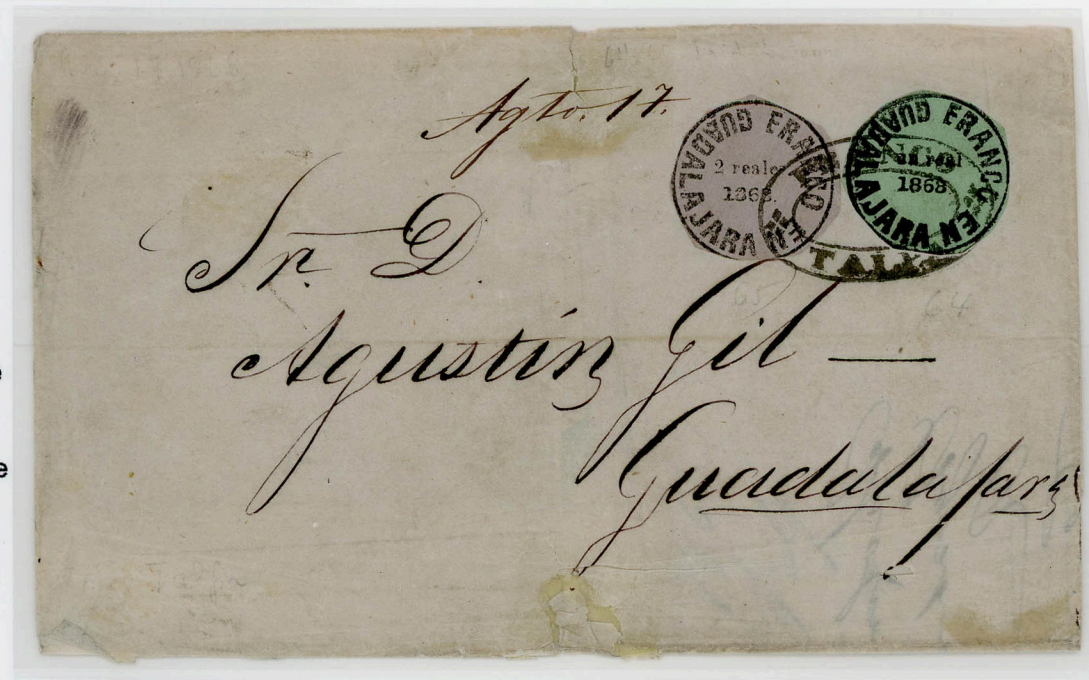 Agto. 17.
FRANCO EN GUADALAJARA
2 reales
1868.
FRANCO EN GUADALAJARA
un real
1868
Sr. D.
Agustín Gil —
Guadalajara
64
e
e